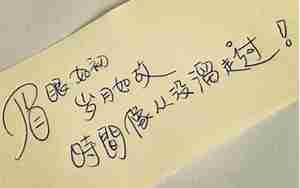 眉眼如初
岁月如故
時間像从没溜走过!